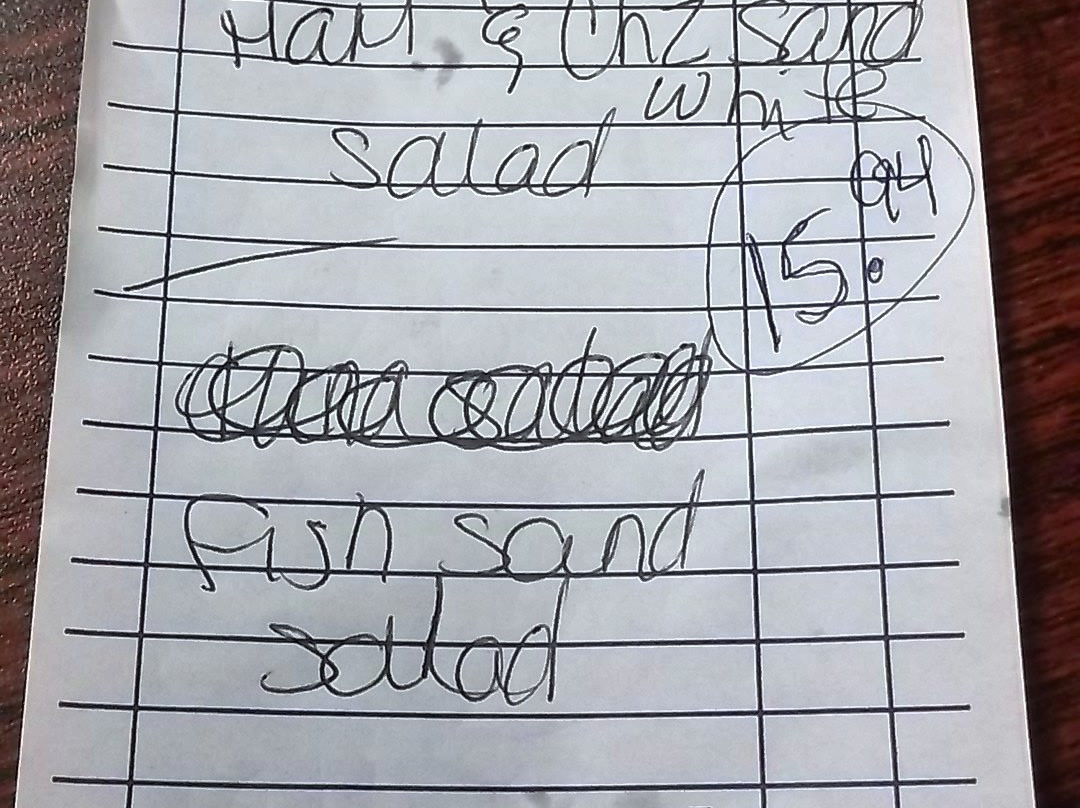 Ham & Chz sand
white
salad
94
15.
Fish sand
salad